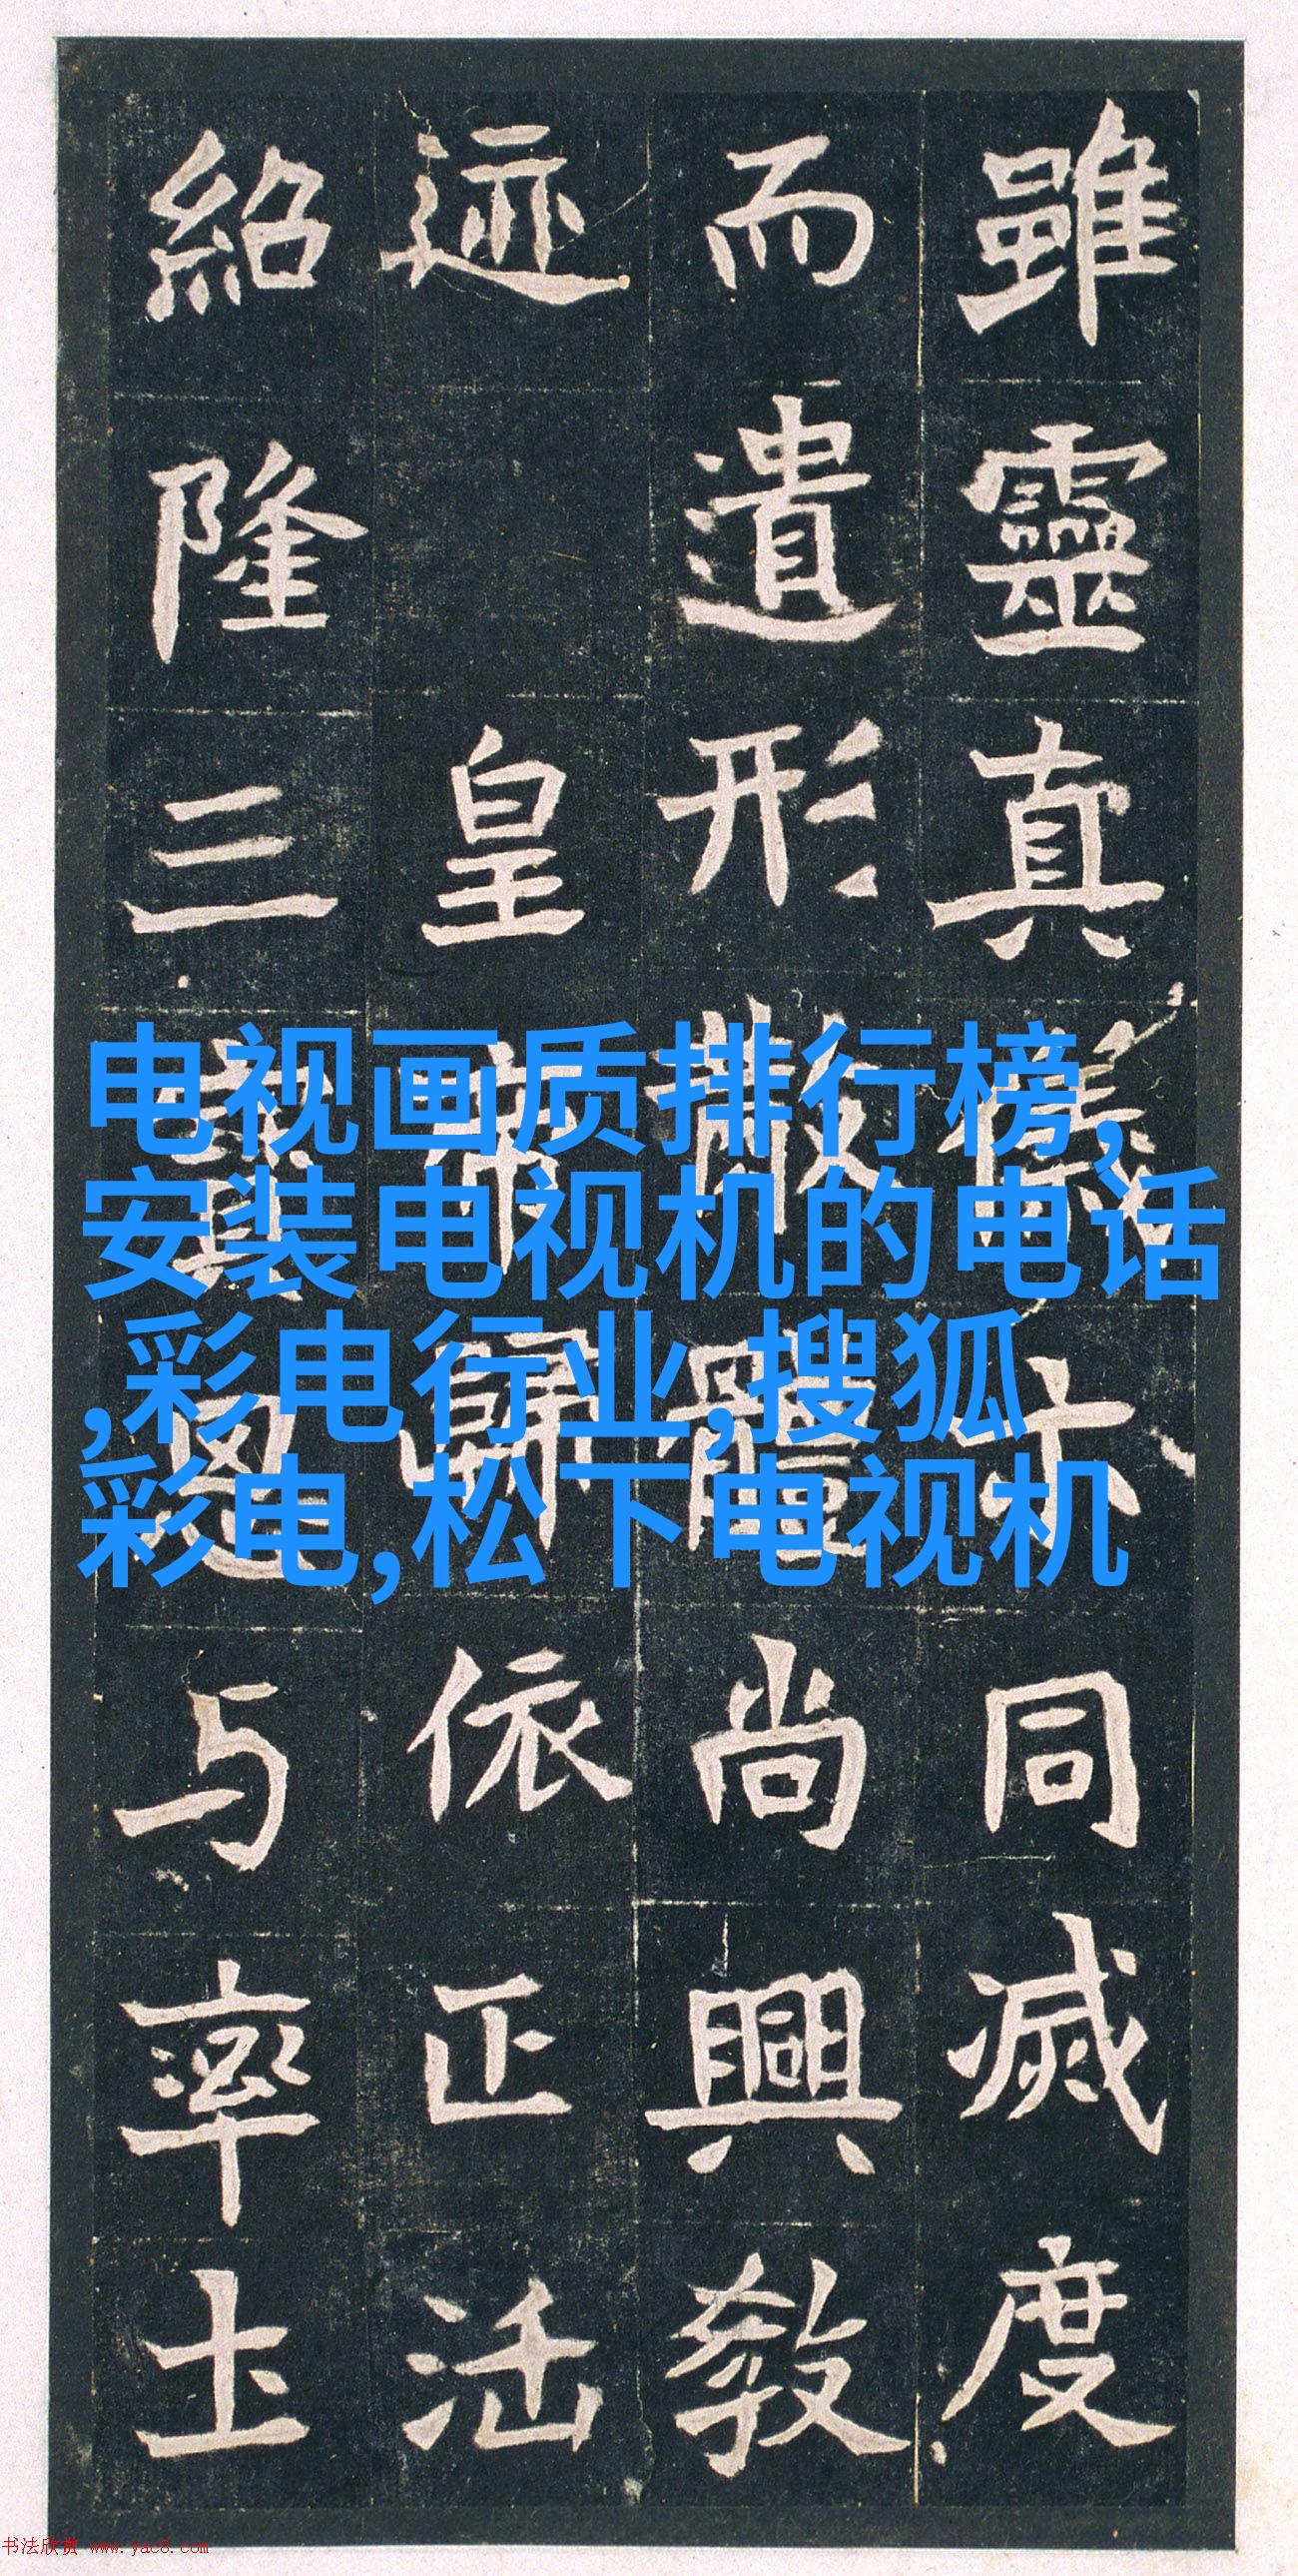 雖靈真儀同滅度
而遺形散體尚興教
迹皇帝歸依正法
紹隆三寶思与率土
电视画质排行榜,
安装电视机的电话
,彩电行业,搜狐
彩电,松下电视机
书法欣赏 www.yac8.com